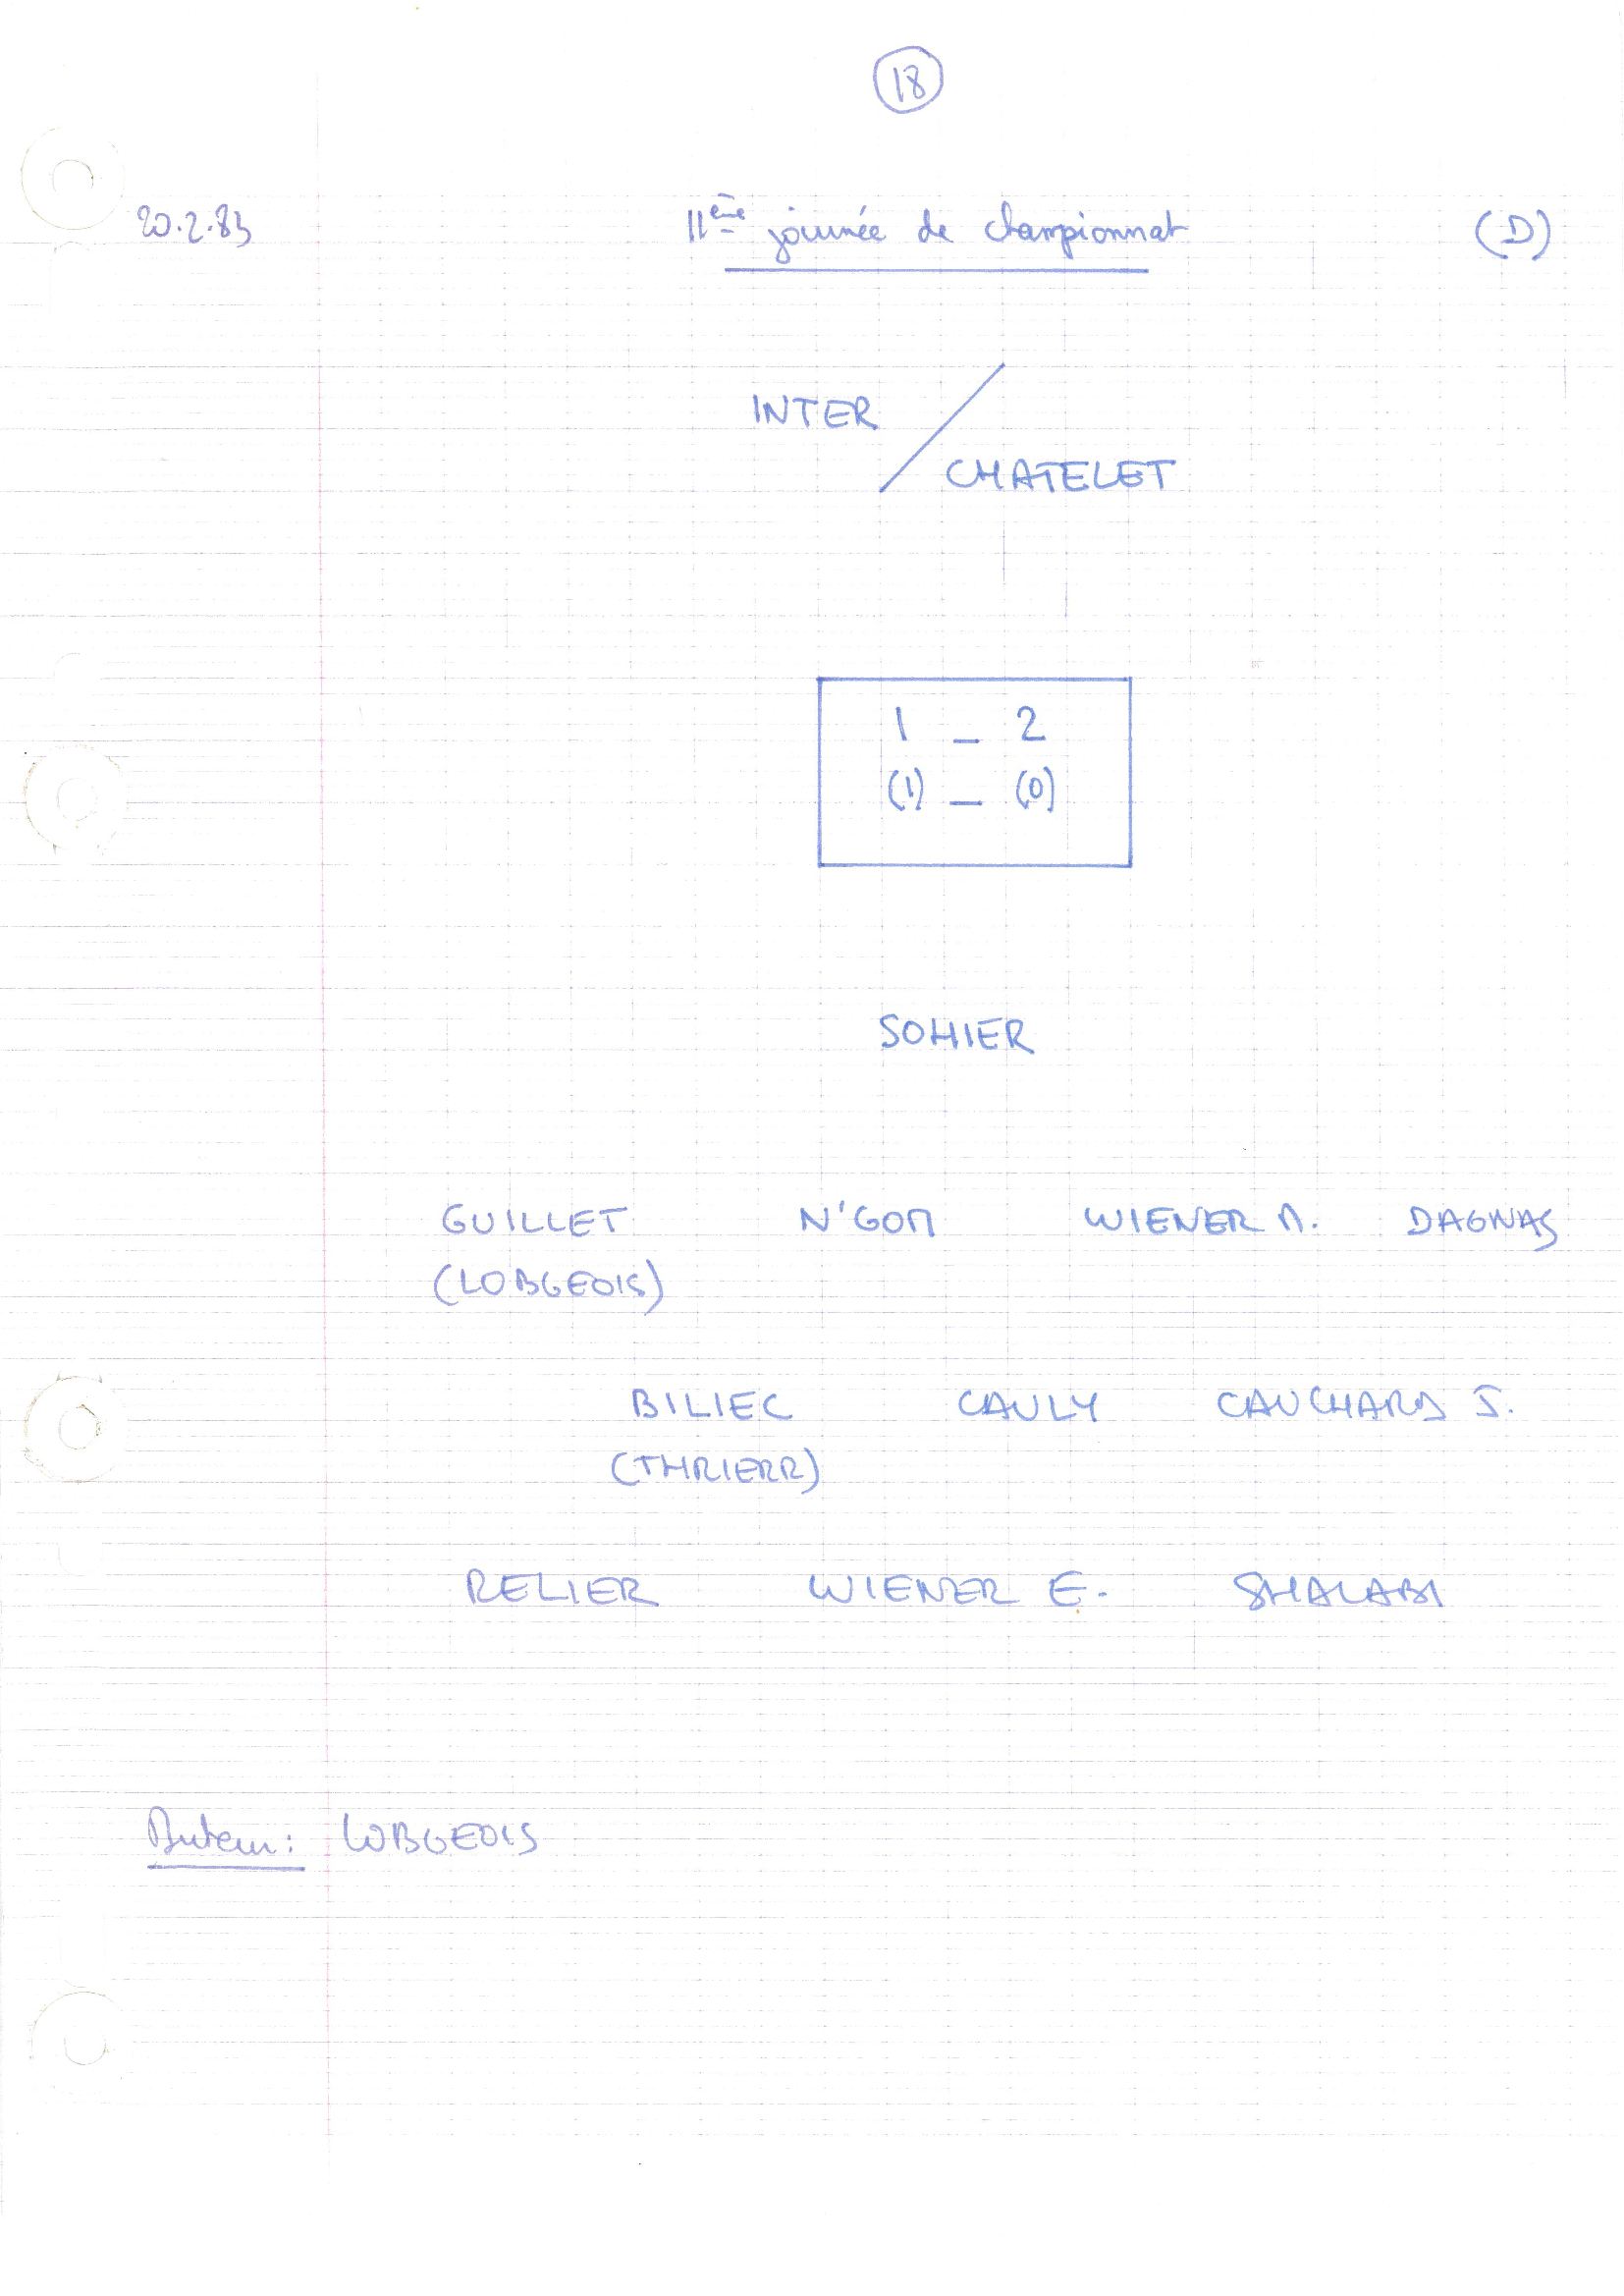 18
20.2.83 11ème journée de championnat (D)
INTER /
CHATELET
1 _ 2
(1) _ (0)
SOHIER
GUILLET N'GOM WIENER M. DAGNAS
(LOBGEOIS)
BILIEC CAULY CAUCHARD J.
(THRIERR)
RELIER WIENER E. SHALABI
Buteur: LOBGEOIS